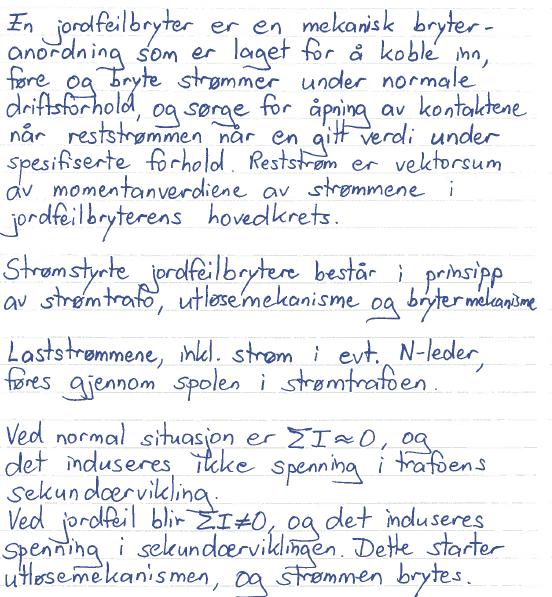 En jordfeilbryter er en mekanisk bryter-
anordning som er laget for å koble inn,
føre og bryte strømmer under normale
driftsforhold, og sørge for åpning av kontaktene
når reststrømmen når en gitt verdi under
spesifiserte forhold. Reststrøm er vektorsum
av momentanverdiene av strømmene i
jordfeilbryterens hovedkrets.
Strømstyrte jordfeilbrytere består i prinsipp
av strømtrafo, utløsemekanisme og brytermekanisme
Laststrømmene, inkl. strøm i evt. N-leder,
føres gjennom spolen i strømtrafoen.
Ved normal situasjon er ΣI≈0, og
det induseres ikke spenning i trafoens
sekundærvikling.
Ved jordfeil blir ΣI≠0, og det induseres
spenning i sekundærviklingen. Dette starter
utløsemekanismen, og strømmen brytes.